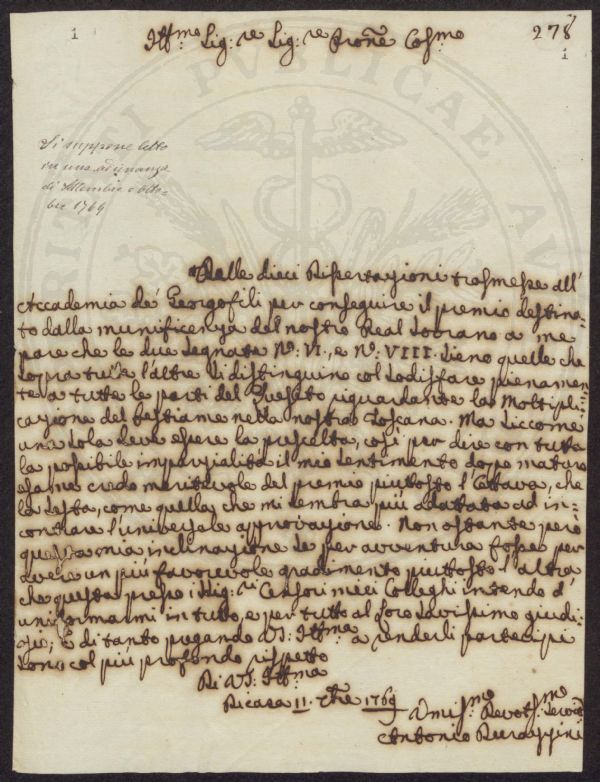 1
278
1
Ill.mo Sig:re Sig:re Prone Col.mo
Si suppone letto
in una adunanza
di Settembre o Otto-
bre 1769
Delle dieci Dissertazioni trasmesse all'
Accademia de' Georgofili per conseguire il premio destina-
to dalla munificenza del nostro Real Sovrano a me
pare che le due segnate No. VI., e No. VIII. sieno quelle che
sopra tutte l'altre si distinguino col sodisfare pienamen-
te a tutte le parti del Quesito riguardante la Moltipli-
cazione del bestiame nella nostra Toscana. Ma siccome
una sola deve essere la prescelta, così per dire con tutta
la possibile imparzialità il mio sentimento dopo maturo
esame credo meritevole del premio piuttosto l'Ottava, che
la sesta, come quella, che mi sembra più adattata ad in-
contrare l'universale approvazione. Non ostante però
questa mia inclinazione se per avventura fosse per
avere un più favorevole gradimento piuttosto l'altra
che questa presso i Sig:ri Censori miei Colleghi intendo d'
uniformarmi in tutto, e per tutto al loro savissimo giudi-
zio; E di tanto pregando VS: Ill.ma a renderli partecipi
sono col più profondo rispetto
Di VS: Ill.ma
Di casa 11. 7bre 1769
Umis.mo Devot.mo
Antonio